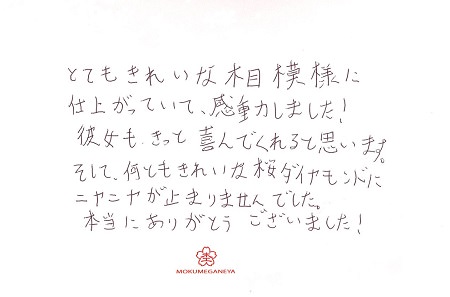 とてもきれいな木目模様に
仕上がっていて、感動しました！
彼女も、きっと喜んでくれると思います。
そして、何ともきれいな桜ダイヤモンドに
ニヤニヤが止まりませんでした。
本当にありがとうございました！
MOKUMEGANEYA